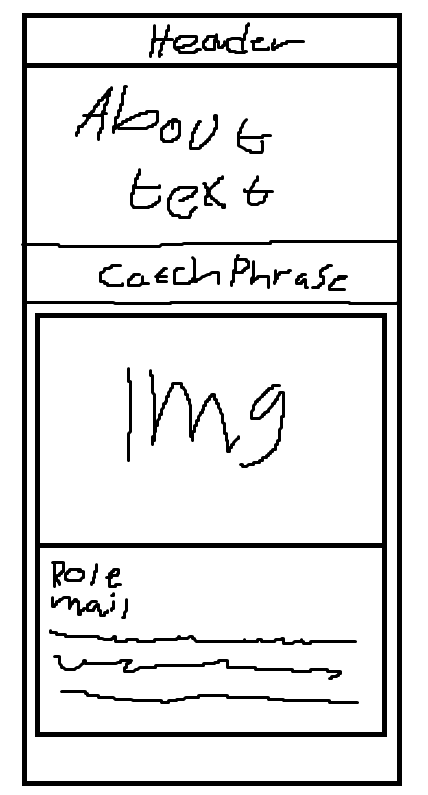 Header
About
text
CatchPhrase
Img
Role
mail